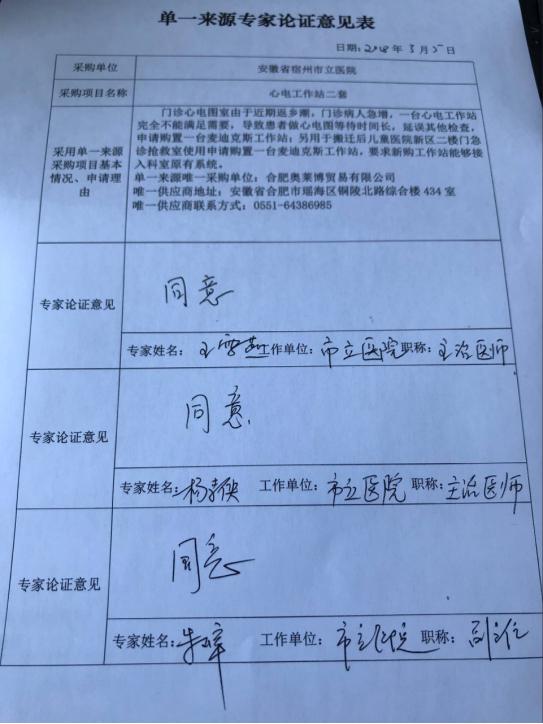 单一来源专家论证意见表
日期：2018年3月5日
采购单位 安徽省宿州市立医院
采购项目名称 心电工作站二套
采用单一来源采购项目基本情况、申请理由
门诊心电图室由于近期返乡潮，门诊病人急增，一台心电工作站
完全不能满足需要，导致患者做心电图等待时间长，延误其他检查，
申请购置一台麦迪克斯工作站；另用于搬迁后儿童医院新区二楼门急
诊抢救室使用申请购置一台麦迪克斯工作站，要求新购工作站能够接
入科室原有系统。
单一来源唯一采购单位：合肥奥莱博贸易有限公司
唯一供应商地址：安徽省合肥市瑶海区铜陵北路综合楼 434 室
唯一供应商联系方式：0551-64386985
专家论证意见 同意
专家姓名：王雪燕 工作单位：市立医院 职称：主治医师
专家论证意见 同意.
专家姓名：杨 工作单位：市立医院 职称：主治医师
专家论证意见 同意
专家姓名：朱 工作单位：市立医院 职称：副主任